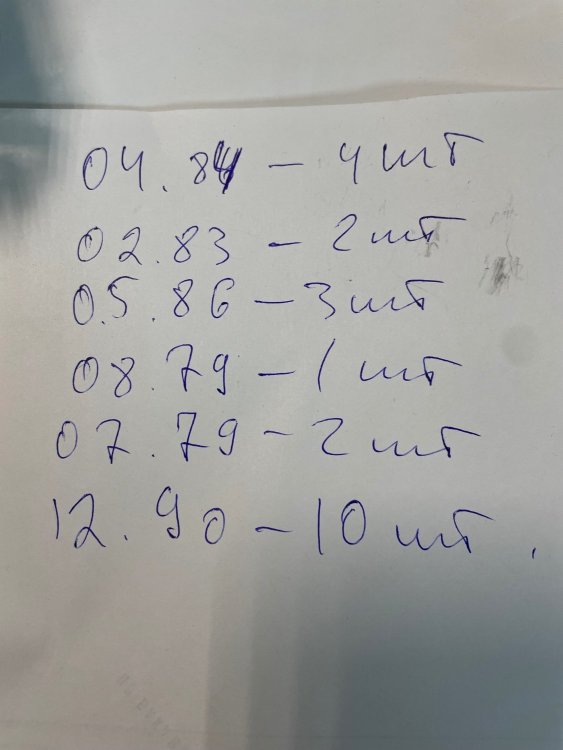 04.84 - 4 шт
02.83 - 2 шт
05.86 - 3 шт
08.79 - 1 шт
07.79 - 2 шт
12.90 - 10 шт.